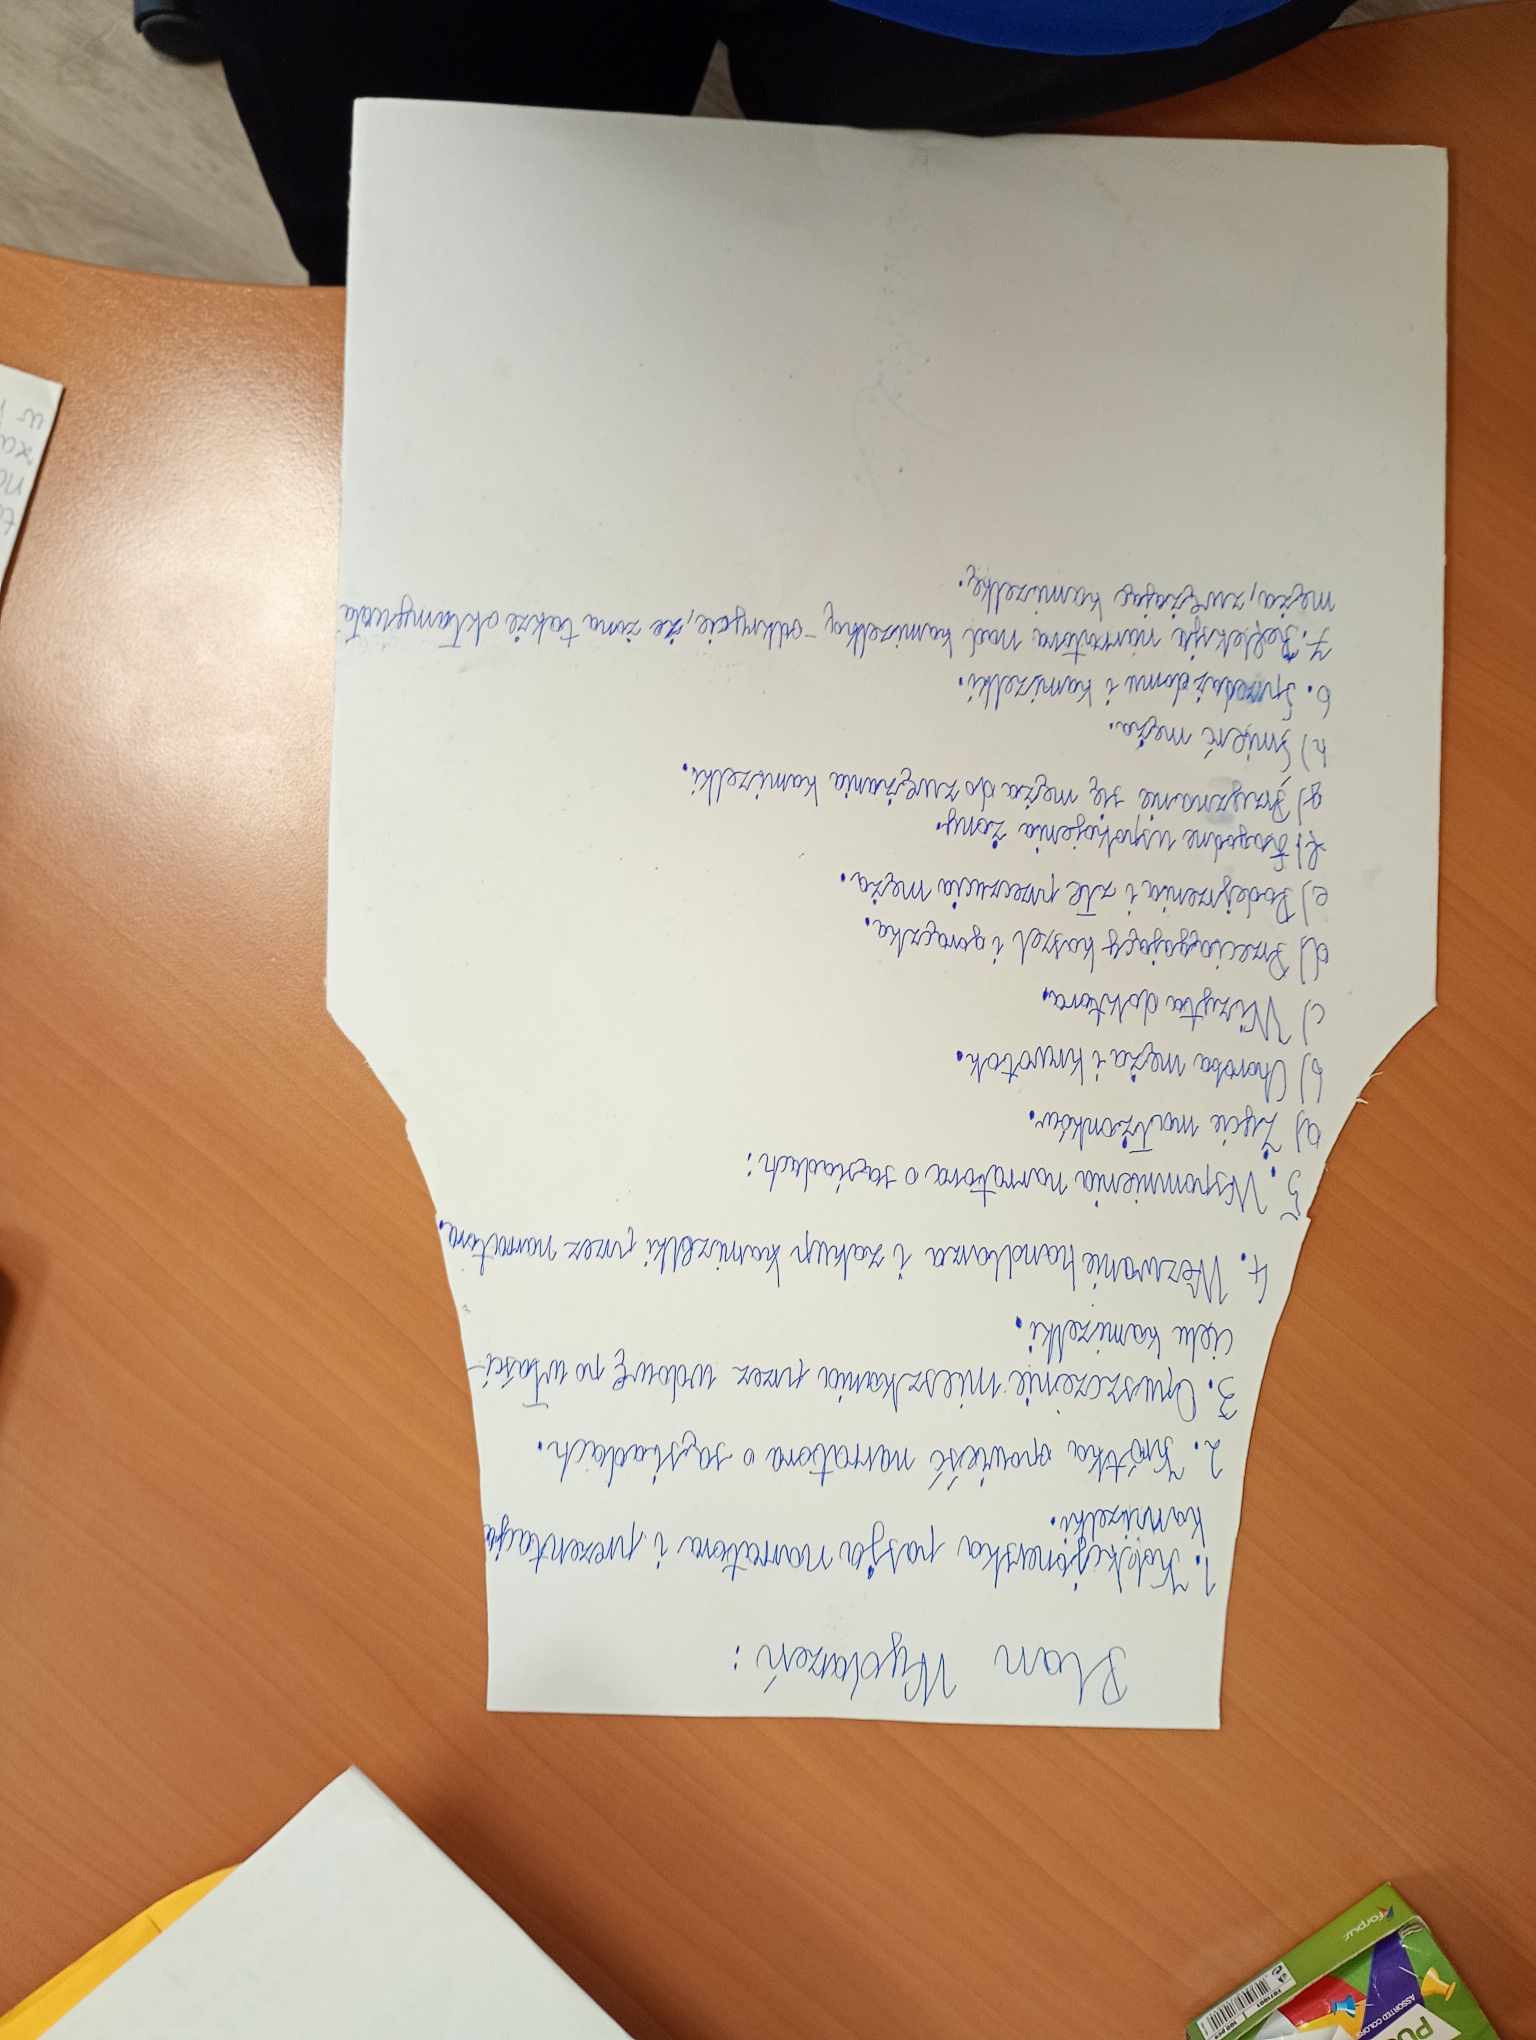 Plan Wydarzeń:
1. Kolekcjonerska pasja narratora i prezentacja
kamizelki.
2. Krótka opowieść narratora o sąsiadach.
3. Opuszczenie mieszkania przez wdowę po właści-
cielu kamizelki.
4. Wezwanie handlarza i zakup kamizelki przez narratora.
5. Wspomnienia narratora o sąsiadach:
a) Życie małżonków.
b) Choroba męża i krwotok.
c) Wizyta doktora.
d) Przeciągający kaszel i gorączka.
e) Podejrzenia i złe przeczucia męża.
f) Łagodne uspokojenia żony.
g) Przyznanie się męża do zwężania kamizelki.
h) Śmierć męża.
6. Sprzedaż domu i kamizelki.
7. Refleksja narratora nad kamizelką - odkrycie, że żona także okłamywała
męża, zwężając kamizelkę.
forpus
ASSORTED COLORS
PU
100 pcs